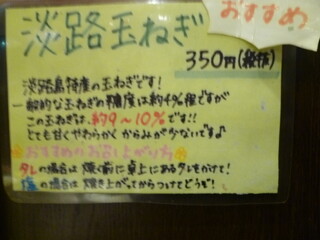 おすすめ
淡路玉ねぎ
350円(税抜)
淡路島特産の玉ねぎです!
一般的な玉ねぎの糖度は約4%程ですが
この玉ねぎは、約9~10%です!!
とても甘くやわらかく からみが少ないです♪
おすすめのお召し上がり方
タレの場合は 焼く前に卓上にあるタレをかけて!
塩の場合は 焼き上がってからつけてどうぞ!